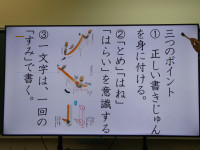 三つのポイント
① 正しい書きじゅん
を身に付ける。
②「とめ」「はね」
「はらい」を意識する
③ 一文字は、一回の
「すみ」で書く。